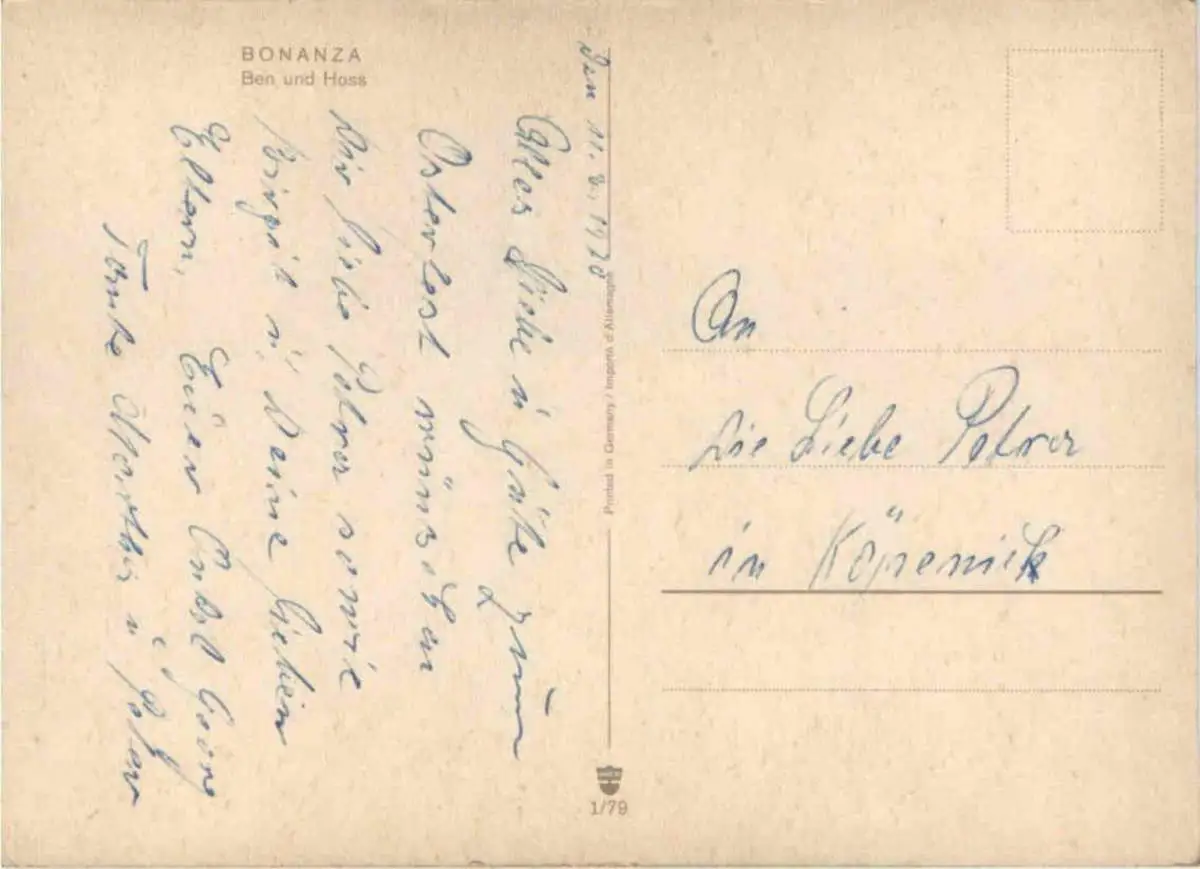 BONANZA
Ben und Hoss
Den 11. 3. 1970
Alles Liebe u Gute zum
Osterfest wünschen
Dir liebe Petra sowie
Birgit u. Deine Lieben
Eltern. Euer Onkel Georg
Tante Martha u Peter
Printed in Germany / Importé d'Allemagne
1/79
An
die Liebe Petra
in Köpenick